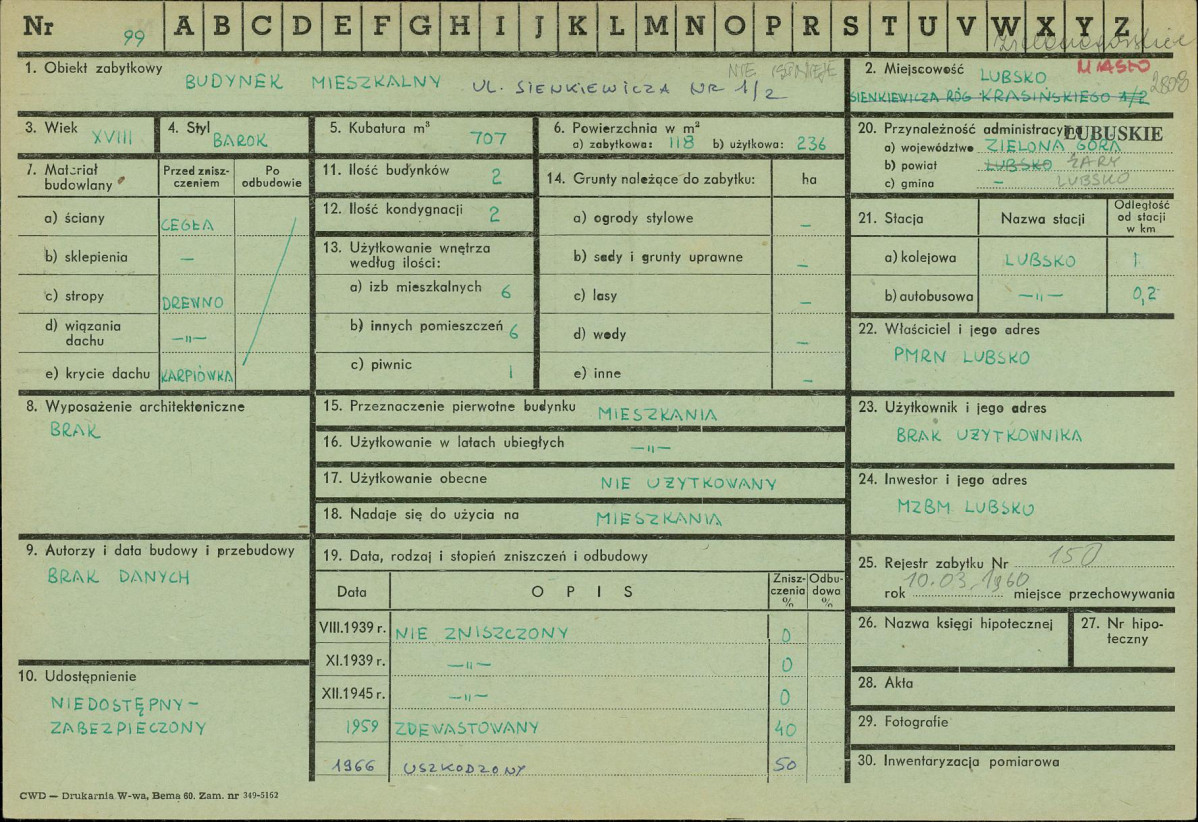 Nr 99 A B C D E F G H I J K L M N O P R S T U V W X Y Z
1. Obiekt zabytkowy BUDYNEK MIESZKALNY UL. SIENKIEWICZA NR 1/2
NIE ISTNIEJE
2. Miejscowość LUBSKO MIASTO
SIENKIEWICZA RÓG KRASIŃSKIEGO 1/2
2808
3. Wiek XVIII
4. Styl BAROK
5. Kubatura m³ 707
6. Powierzchnia w m²
a) zabytkowa: 118 b) użytkowa: 236
7. Materiał budowlany
Przed zniszczeniem
Po odbudowie
a) ściany CEGŁA
b) sklepienia —
c) stropy DREWNO
d) wiązania dachu —"—
e) krycie dachu KARPIÓWKA
8. Wyposażenie architektoniczne
BRAK
9. Autorzy i data budowy i przebudowy
BRAK DANYCH
10. Udostępnienie
NIEDOSTĘPNY –
ZABEZPIECZONY
11. Ilość budynków 2
12. Ilość kondygnacji 2
13. Użytkowanie wnętrza
według ilości:
a) izb mieszkalnych 6
b) innych pomieszczeń 6
c) piwnic 1
14. Grunty należące do zabytku: ha
a) ogrody stylowe —
b) sady i grunty uprawne —
c) lasy —
d) wody —
e) inne —
15. Przeznaczenie pierwotne budynku MIESZKANIA
16. Użytkowanie w latach ubiegłych —"—
17. Użytkowanie obecne NIE UŻYTKOWANY
18. Nadaje się do użycia na MIESZKANIA
19. Data, rodzaj i stopień zniszczeń i odbudowy
Data OPIS Zniszczenia % Odbudowa %
VIII.1939 r. NIE ZNISZCZONY 0
XI.1939 r. —"— 0
XII.1945 r. —"— 0
1959 ZDEWASTOWANY 40
1966 USZKODZONY 50
20. Przynależność administracyjna LUBUSKIE
a) województwo ZIELONA GÓRA
b) powiat LUBSKO ŻARY
c) gmina — LUBSKO
21. Stacja Nazwa stacji Odległość od stacji w km
a) kolejowa LUBSKO 1
b) autobusowa —"— 0,2
22. Właściciel i jego adres
PMRN LUBSKO
23. Użytkownik i jego adres
BRAK UŻYTKOWNIKA
24. Inwestor i jego adres
MZBM LUBSKO
25. Rejestr zabytku Nr 150
rok 10.03.1960 miejsce przechowywania
26. Nazwa księgi hipotecznej
27. Nr hipoteczny
28. Akta
29. Fotografie
30. Inwentaryzacja pomiarowa
CWD — Drukarnia W-wa, Bema 60. Zam. nr 349-5162